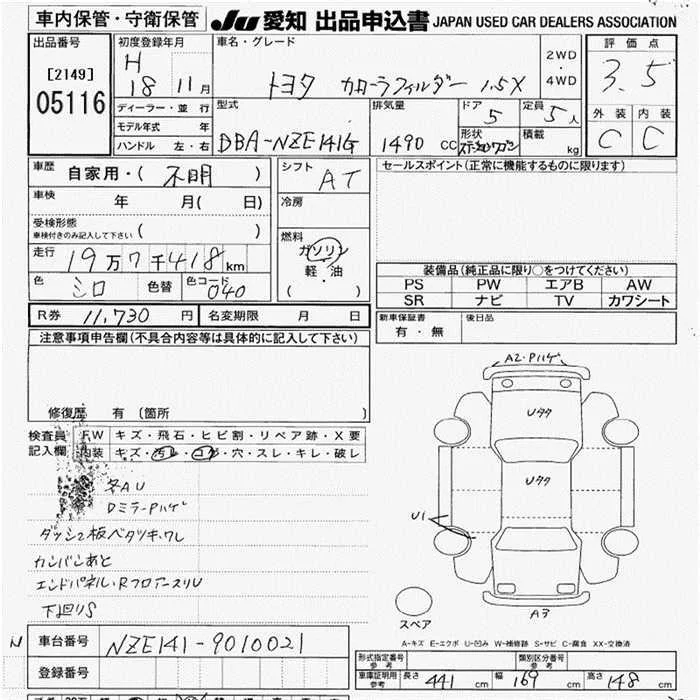 車内保管・守衛保管
JU 愛知 出品申込書 JAPAN USED CAR DEALERS ASSOCIATION
出品番号
[2149]
05116
初度登録年月
H
18 11月
車名・グレード
トヨタ カローラフィルダー 1.5X
2WD
・
4WD
評価点
3.5
外装 内装
C C
ディーラー・並行
モデル年式 年
ハンドル 左・右
型式
DBA-NZE141G
排気量
1490 CC
ドア
5
定員
5人
形状
ステーションワゴン
積載
kg
車歴
自家用・( 不明 )
車検
年 月( 日)
受検形態
車検付きのみ記入して下さい ( )
走行
19万7千418km
色
シロ
色替
色コード
040
シフト
AT
冷房
燃料
ガソリン
軽・油
( )
セールスポイント(正常に機能するものに限ります)
装備品(純正品に限り○をつけてください)
PS PW エアB AW
SR ナビ TV カワシート
新車保証書
有・無
後日品
R券 11,730 円
名変期限 月 日
注意事項申告欄(不具合内容等は具体的に記入して下さい)
修復歴 有 (箇所 )
検査員
記入欄
FW キズ・飛石・ヒビ割・リペア跡・X要
内装 キズ・汚レ・コゲ・穴・スレ・キレ・破レ
各AU
DミラーPハゲ
ダッシュ板ベタツキ、ワレ
カンバンあと
エンドパネル・RフロアースリU
下回りS
A2・Pハゲ
Uタタ
Uタタ
U1
A3
スペア
A-キズ E-エクボ U-凹み W-補修跡 S-サビ C-腐食 XX-交換済
N
車台番号 NZE141-9010021
登録番号
形式指定番号
参考
類別区分番号
参考
車庫証明用
参考
長さ 441 cm
幅 169 cm
高さ 148 cm